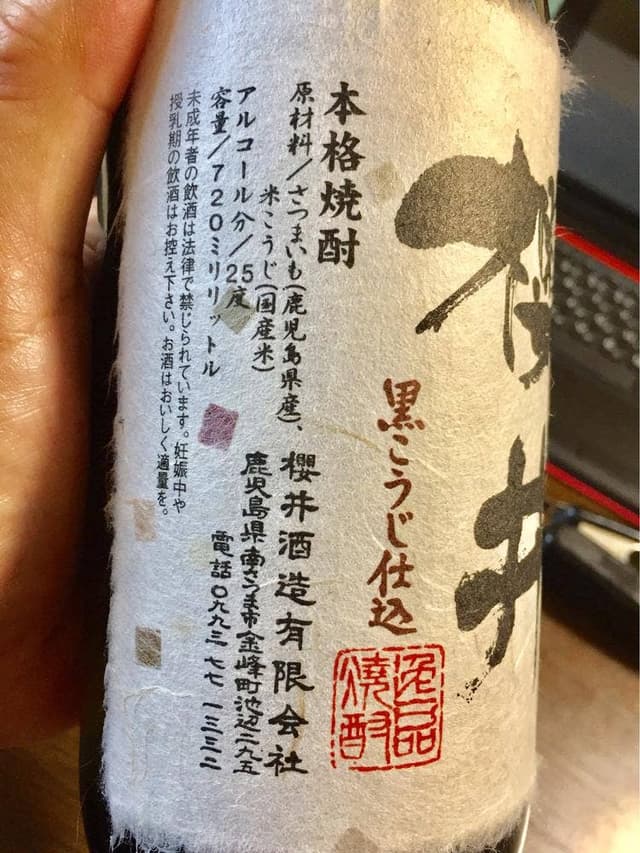 櫻井
黒こうじ仕込
逸品
焼酎
本格焼酎
原材料/さつまいも(鹿児島県産)、
米こうじ(国産米)
アルコール分/25度
容量/720ミリリットル
未成年者の飲酒は法律で禁じられています。妊娠中や
授乳期の飲酒はお控え下さい。お酒はおいしく適量を。
櫻井酒造有限会社
鹿児島県南さつま市金峰町池辺二九五
電話〇九九三 七七 一三三二